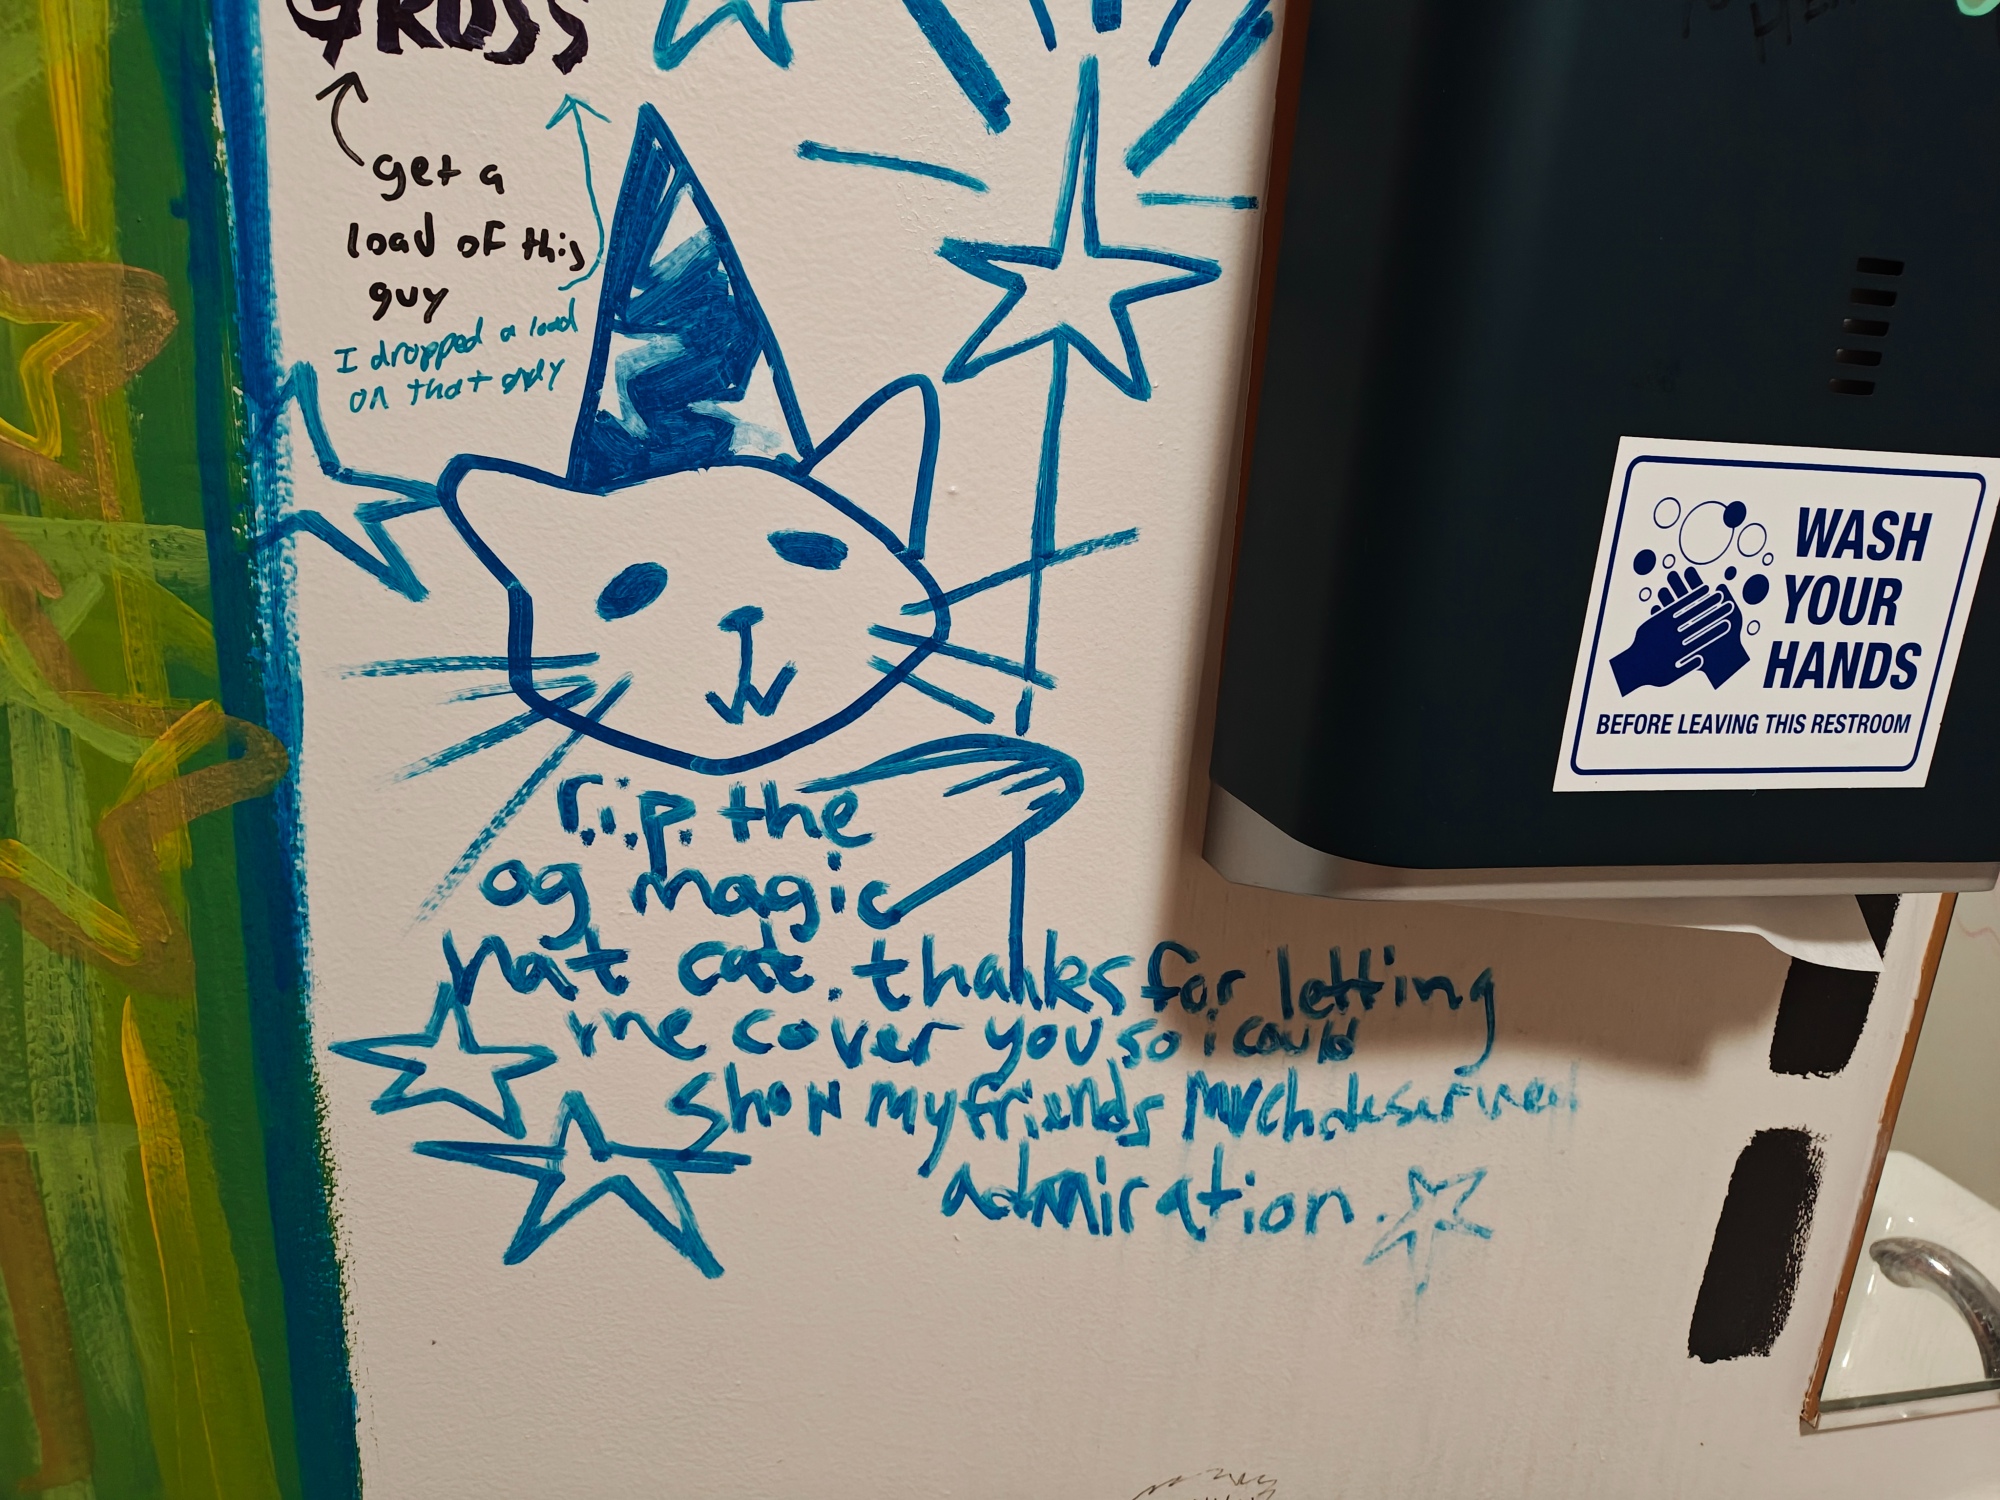 GROSS
get a
load of this
guy
I dropped a load
on that guy
r.i.p. the
og magic
hat cat. thanks for letting
me cover you so i could
show my friends much deserved
admiration.
WASH
YOUR
HANDS
BEFORE LEAVING THIS RESTROOM